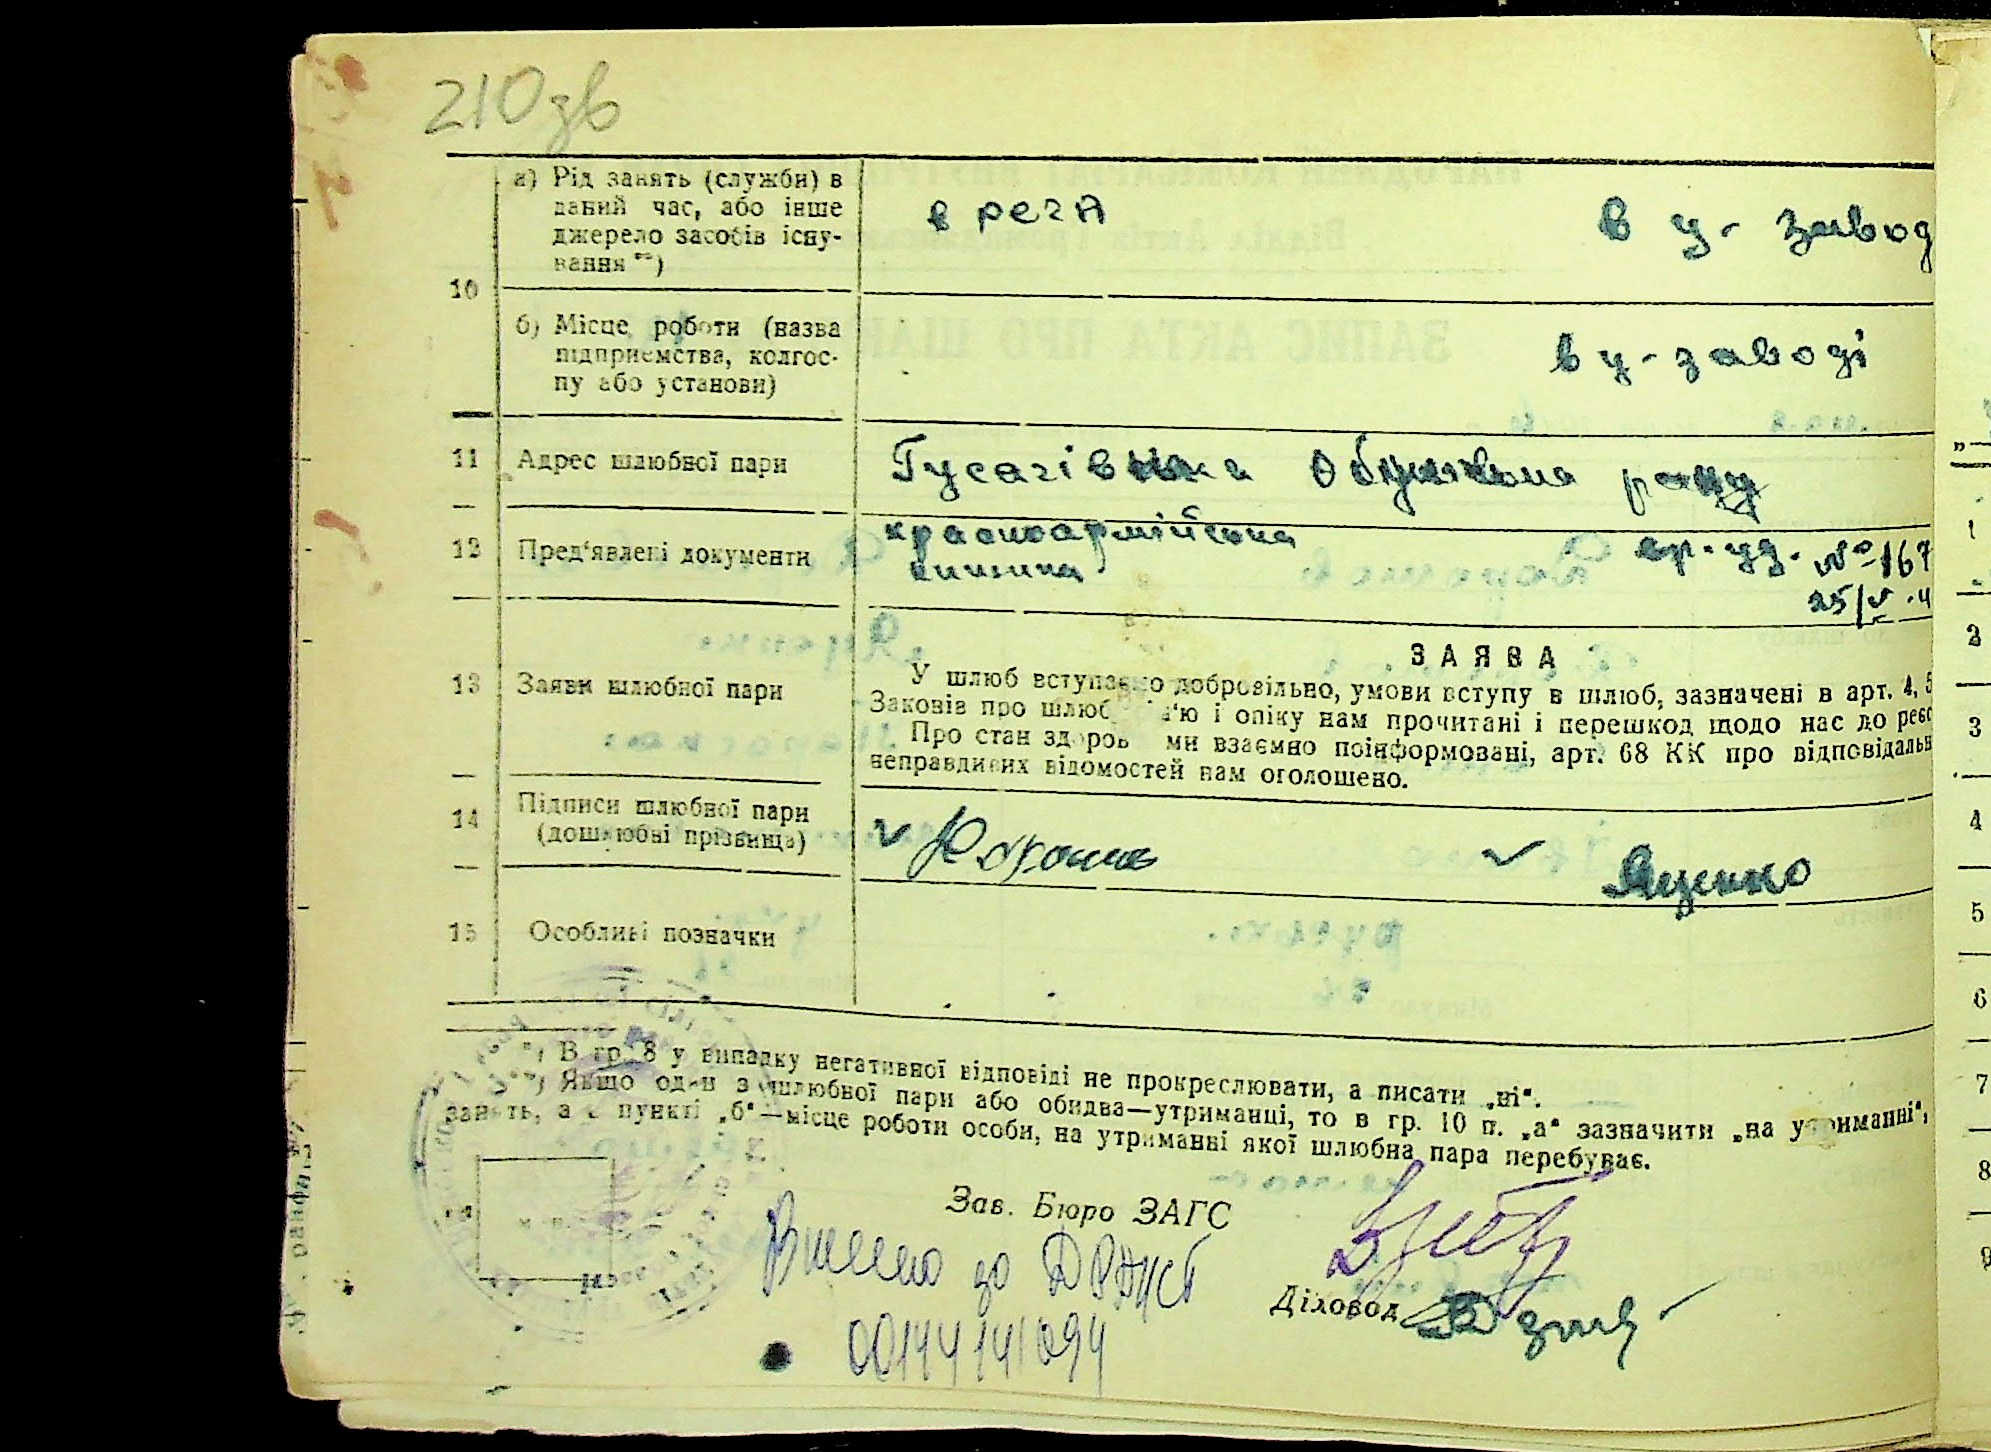 210 зв
10
а) Рід занять (служби) в
даний час, або інше
джерело засобів існу-
вання **)
в
в ц- завод
б) Місце роботи (назва
підприємства, колгос-
пу або установи)
в ц-заводі
11 Адрес шлюбної пари
Гусачівка
12 Пред'явлені документи
красноармійська
книжка
№ 167
25/V
ЗАЯВА
13 Заяви шлюбної пари
У шлюб вступаємо добровільно, умови вступу в шлюб, зазначені в арт. 4, 5
Законів про шлюб і опіку нам прочитані і перешкод щодо нас до реєс
Про стан здоров ми взаємно поінформовані, арт. 68 КК про відповідальн
неправдивих відомостей нам оголошено.
14 Підписи шлюбної пари
(дошлюбні прізвища)
Яценко
15 Особливі позначки
*) В гр. 8 у випадку негативної відповіді не прокреслювати, а писати „ні“.
**) Якщо один з шлюбної пари або обидва—утриманці, то в гр. 10 п. „а“ зазначити „на утриманні“,
занять, а в пункті „б“—місце роботи особи, на утриманні якої шлюбна пара перебуває.
Зав. Бюро ЗАГС
Внесено до ДРАЦСГ
00144141094
Діловод
1
2
3
4
5
6
7
8
9